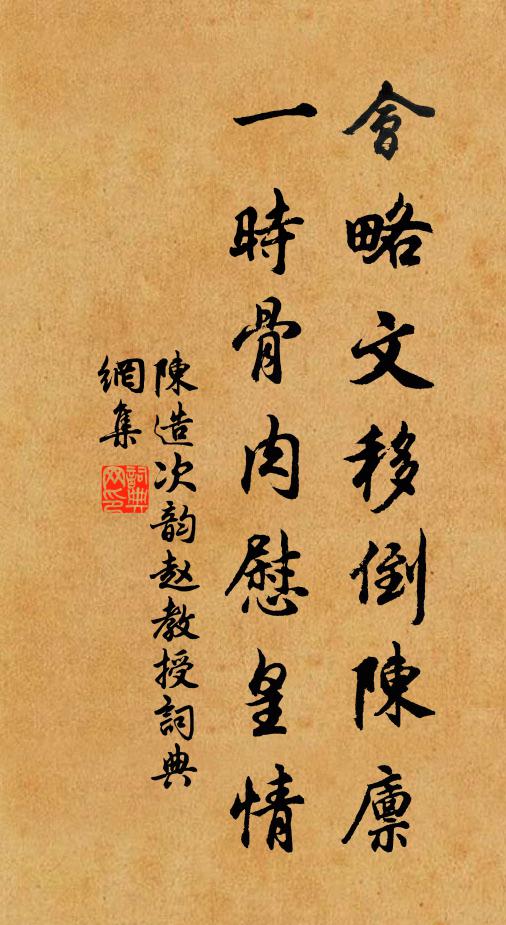 會略文移倒陳廪
一時骨肉慰皇情
陳造次韵赵教授詞典
網集
詞典
网印